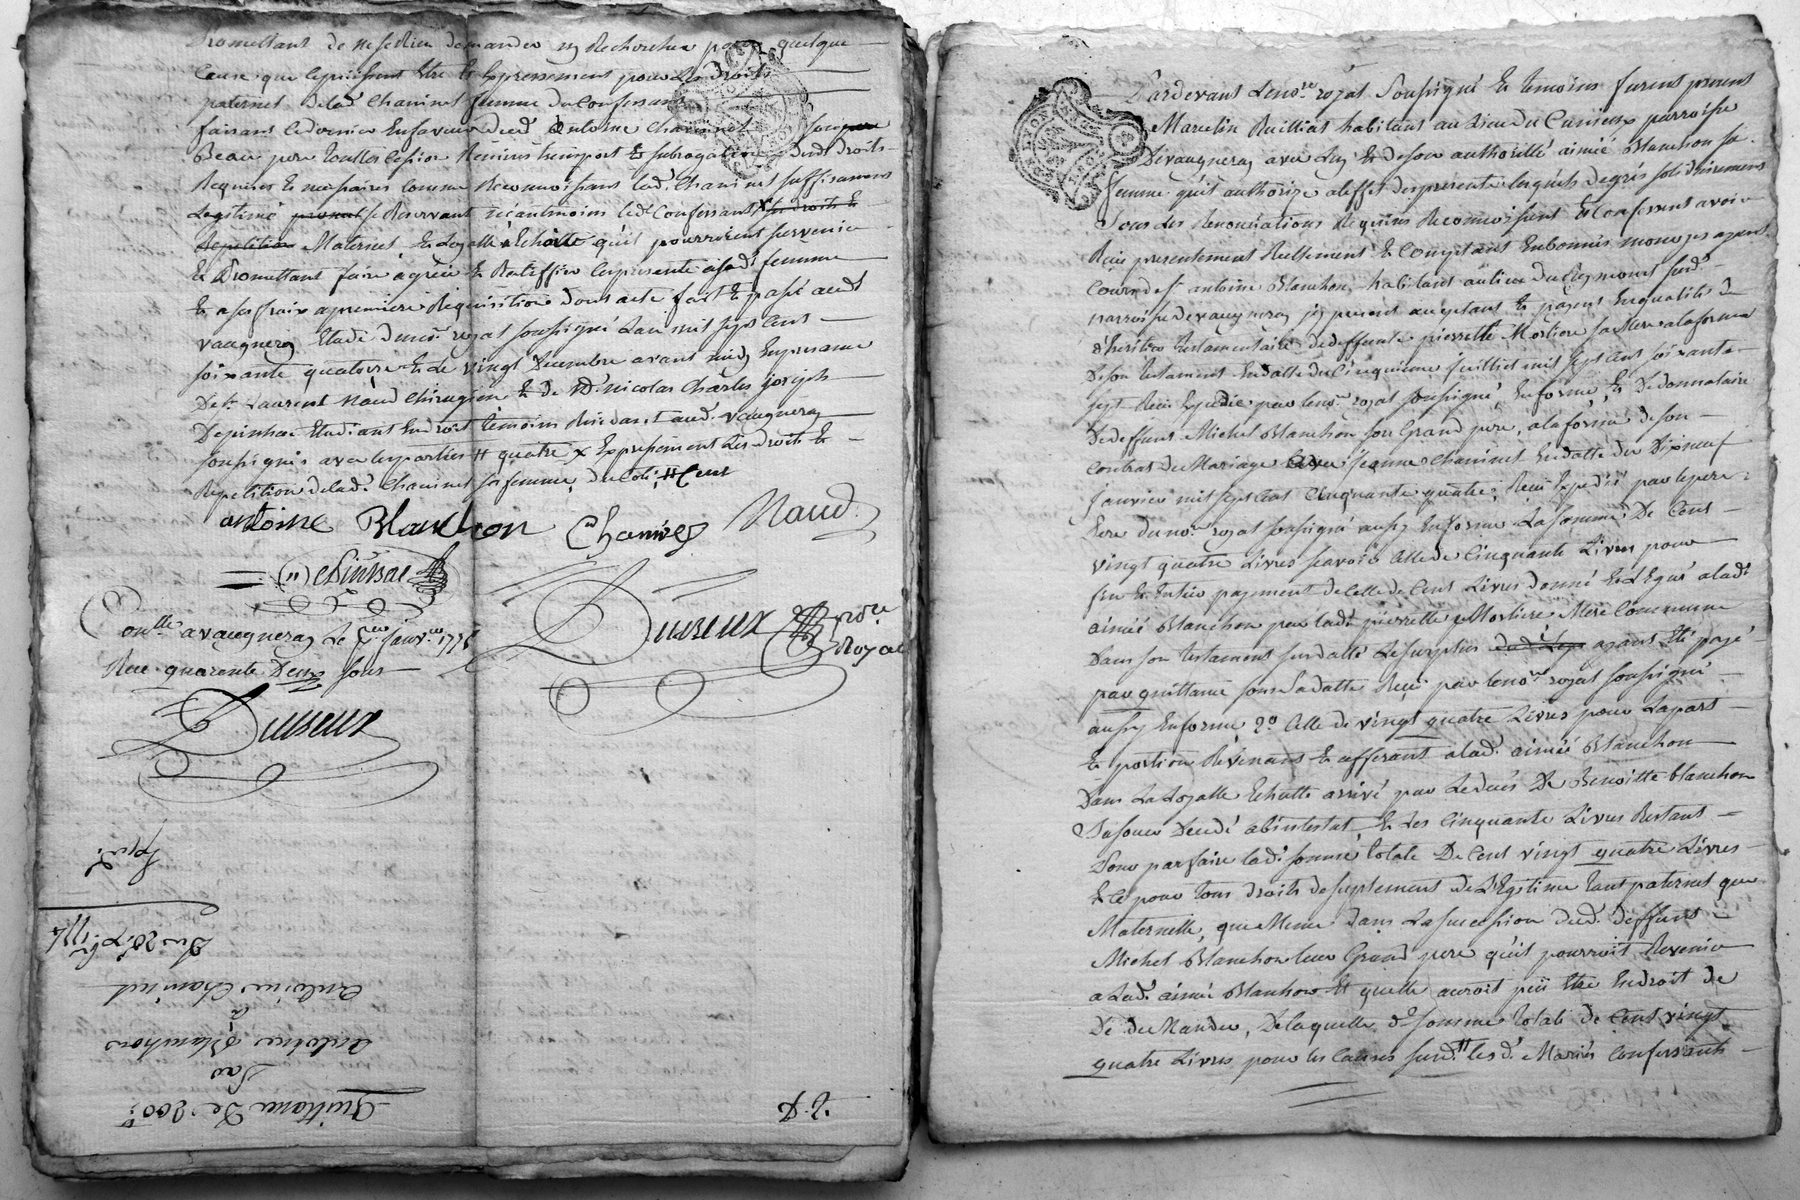 Promettant de ne se Rien demander ny Rechercher pour quelque
Cause que ce puissent Etre Et Expressement pour Les droits
paternel delad. Chaninet femme du Confessant
faisant Ce dernier En faveur dud Antoine Chaninet son
Beau pere touttes Cession Remise transport Et subrogation dud droits
Requises Et necessaires Comme Reconnoissant lad. Chaninet suffisament
Legitimé se Reservant néantmoins led. Confessant x
Maternel Et Loyalle Echutte qu'il pourroient survenir
Et Promettant faire agréer Et Ratiffier Ces presente a sad. femme
Et a ses fraix a premiere Requisition dont acte fait Et passé aud.
vaugneray Etude du no.re royal soussigné L'an mil sept Cent
soixante quatorze Et Le vingt Decembre avant midy En presence
De s.r Laurent Naud chirurgien Et de M.e Nicolas Charles joseph
Depinhac Etudiant En droit temoins Residant aud. vaugneray
soussignés avec Les parties # quatre x Expressement Les droits Et
Repetition delad. Chaninet sa femme, du Coté, #
antoine Blanchon Chaninet Naud
Duseux no.re Royal
Con.llé a vaugneray Le janv.er 1775
Reçu quarente Deux sous
Duseux
Quittance De 200 #
Par
Antoine Blanchon
à
Antoine Chaninet
Du 20. X.bre 1774
Exped.
Pardevant Le no.re royal Soussigné Et temoins furent present
Marcelin Ruilliat habitant au Lieu du Curieux parroisse
De vaugneray avec Luy Et de son authorité aimée Blanchon sa
femme qu'il authorize a l'effet des presente lesquels de grés solidairement
Sous Les Renonciations Requises Reconnoissent Et Confessent avoir
Reçu presentement Reellement Et Comptant En bonnes monoyes ayant
Cours de s.r antoine Blanchon, habitant au lieu du Reymont susd.
parroisse de vaugneray icy present acceptant Et payant En qualité
d'heritier testamentaire de deffunte pierrette Mortiere sa Mere a la forme
De son testament En datte du Cinquieme juilliet mil sept Cent soixante
sept Reçu Expedié par Le no.re royal soussigné, En forme, Et De donnataire
De deffunt Michel Blanchon son Grand pere, a la forme de son
Contrat de Mariage avec jeanne Chaninet En datte du Dixneuf
janvier mil sept Cent Cinquante quatre; Reçu Expedié par le pere
Et Mere du no.re royal soussigné aussy En forme La somme De Cent
vingt quatre Livres sçavoir Celle de Cinquante Livres pour
fin Et Entier payement de Celle de Cent Livres donné Et Legué a lad.
aimée Blanchon par lad. pierrette Mortiere Mere Commune
Dans son testament susdatté Le surplus ayant Eté payé
par quittance sous sa datte Reçu par Le no.re royal soussigné
aussy En forme 2.o Celle de vingt quatre Livres pour La part
Et portion Revenant Et afferant a lad. aimée Blanchon
Dans La Loyalle Echutte arrivé par Le decés De Benoitte Blanchon
Sa soeur Decedé abintestat, Et Les Cinquante Livres Restant
Pour parfaire lad. somme totale De Cent vingt quatre Livres
Et Ce pour tous droits de suplement de L'Egitime tant paternel que
Maternelle, que Meme dans La succession dud. deffunt
Michel Blanchon leur Grand pere qu'il pourroit Revenir
a Lad. aimée Blanchon Et quelle auroit peü Etre En droit de
De demander, De laquelle d.e somme totale de Cent vingt
quatre Livres pour les Causes susd. les d. Mariés Confessants